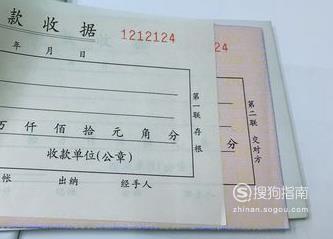 款收据
年 月 日 1212124
第一联 存根
第二联 交对方
万仟佰拾元角分
分
收款单位(公章)
帐 出纳 经手人
搜狗指南
zhinan.sogou.com